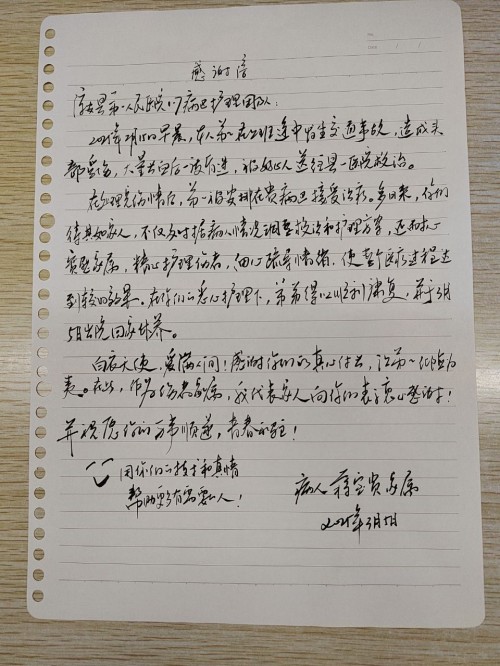 感谢信
县第一人民医院 病区护理团队:
2025年2月 日早晨, 在上班途中发生交通事故, 造成头
部受伤, 大量出血后 被好心人送往县一医院救治。
在处理完伤情后, 弟一被安排在贵病区接受治疗。多日来, 你们
待其如家人, 不仅及时据病人情况调整救治和护理方案, 还耐心
家属, 精心护理伤者, 细心疏导情绪, 使整个医疗过程达
到较好效果。在你们的悉心护理下, 弟弟得以顺利康复, 并于3月
5日出院回家休养。
白衣天使, 爱满人间! 感谢你们的真心付出,
在此, 作为伤者家属, 我代表家人向你们表示衷心感谢!
并祝愿你们万事顺遂, 青春永驻!
用你们的技术和真情
帮助更多有需要的人!
病人 家属
2025年3月5日